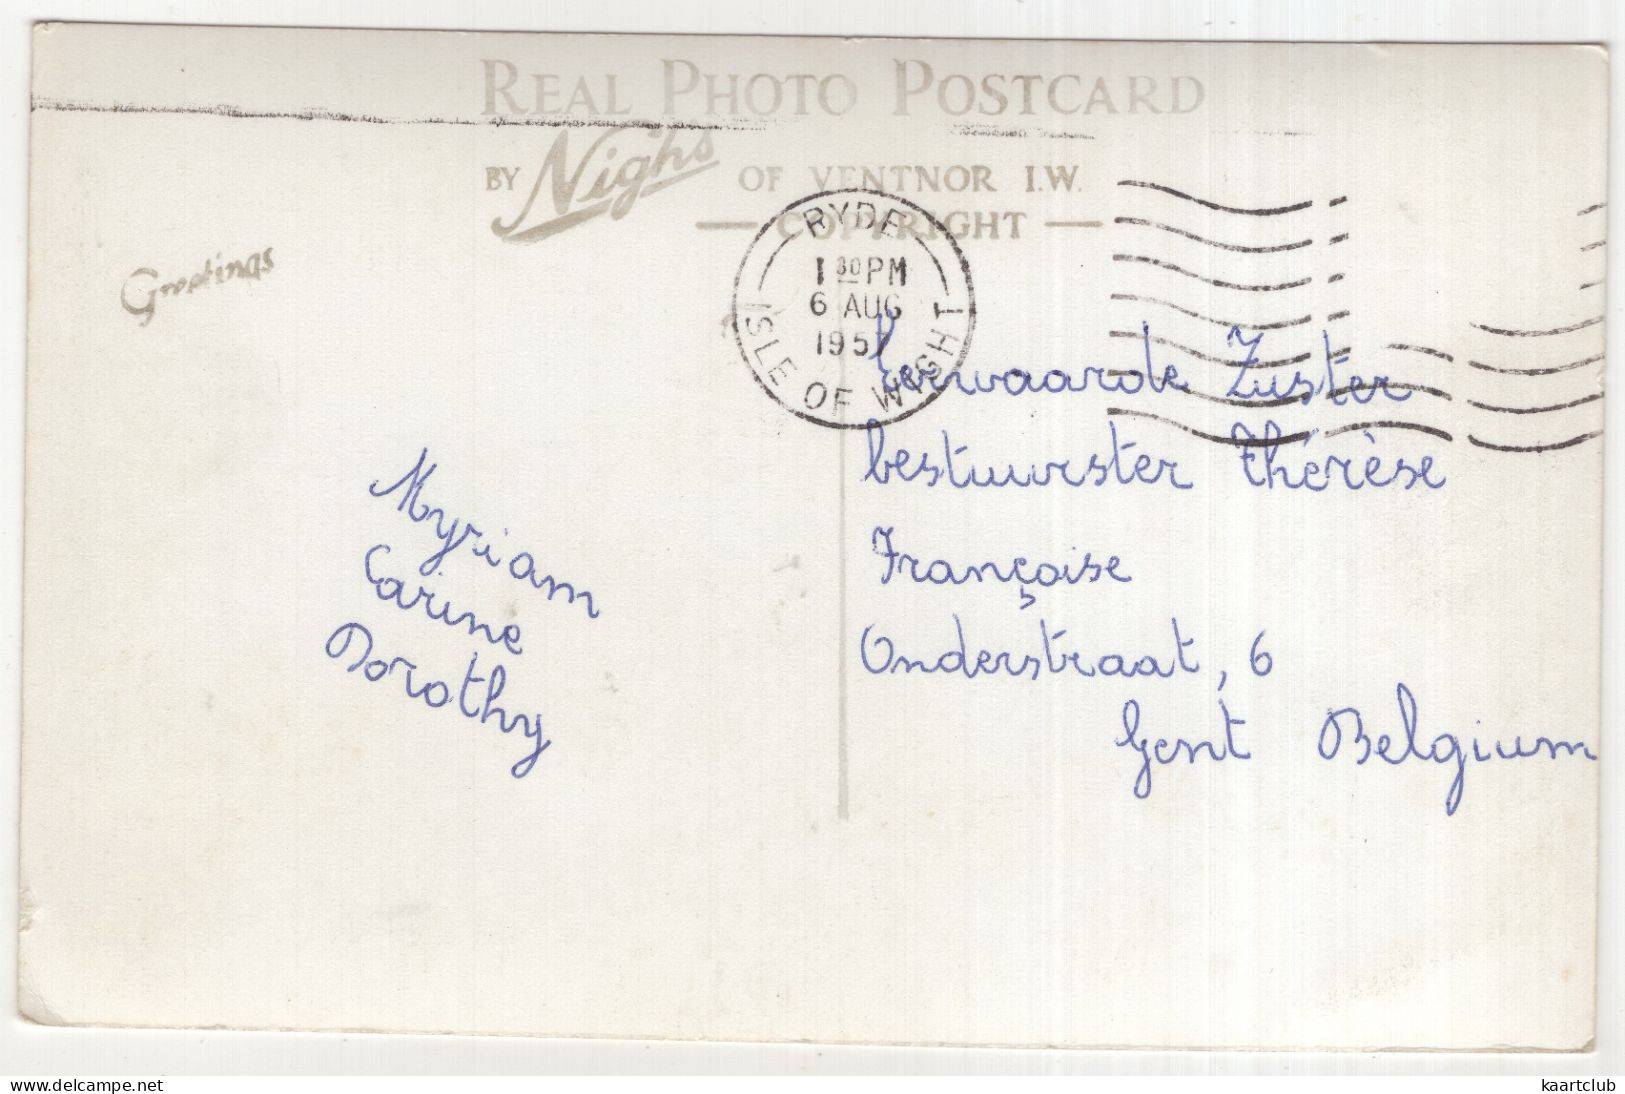 REAL PHOTO POSTCARD
BY Nighs OF VENTNOR I.W.
— COPYRIGHT —
Greetings
RYDE
1 30 PM
6 AUG
1957
ISLE OF WIGHT
Eerwaarde Zuster
bestuurster Thérèse
Françoise
Onderstraat, 6
Gent Belgium
Myriam
Carine
Dorothy
delcampe.net
kaartclub